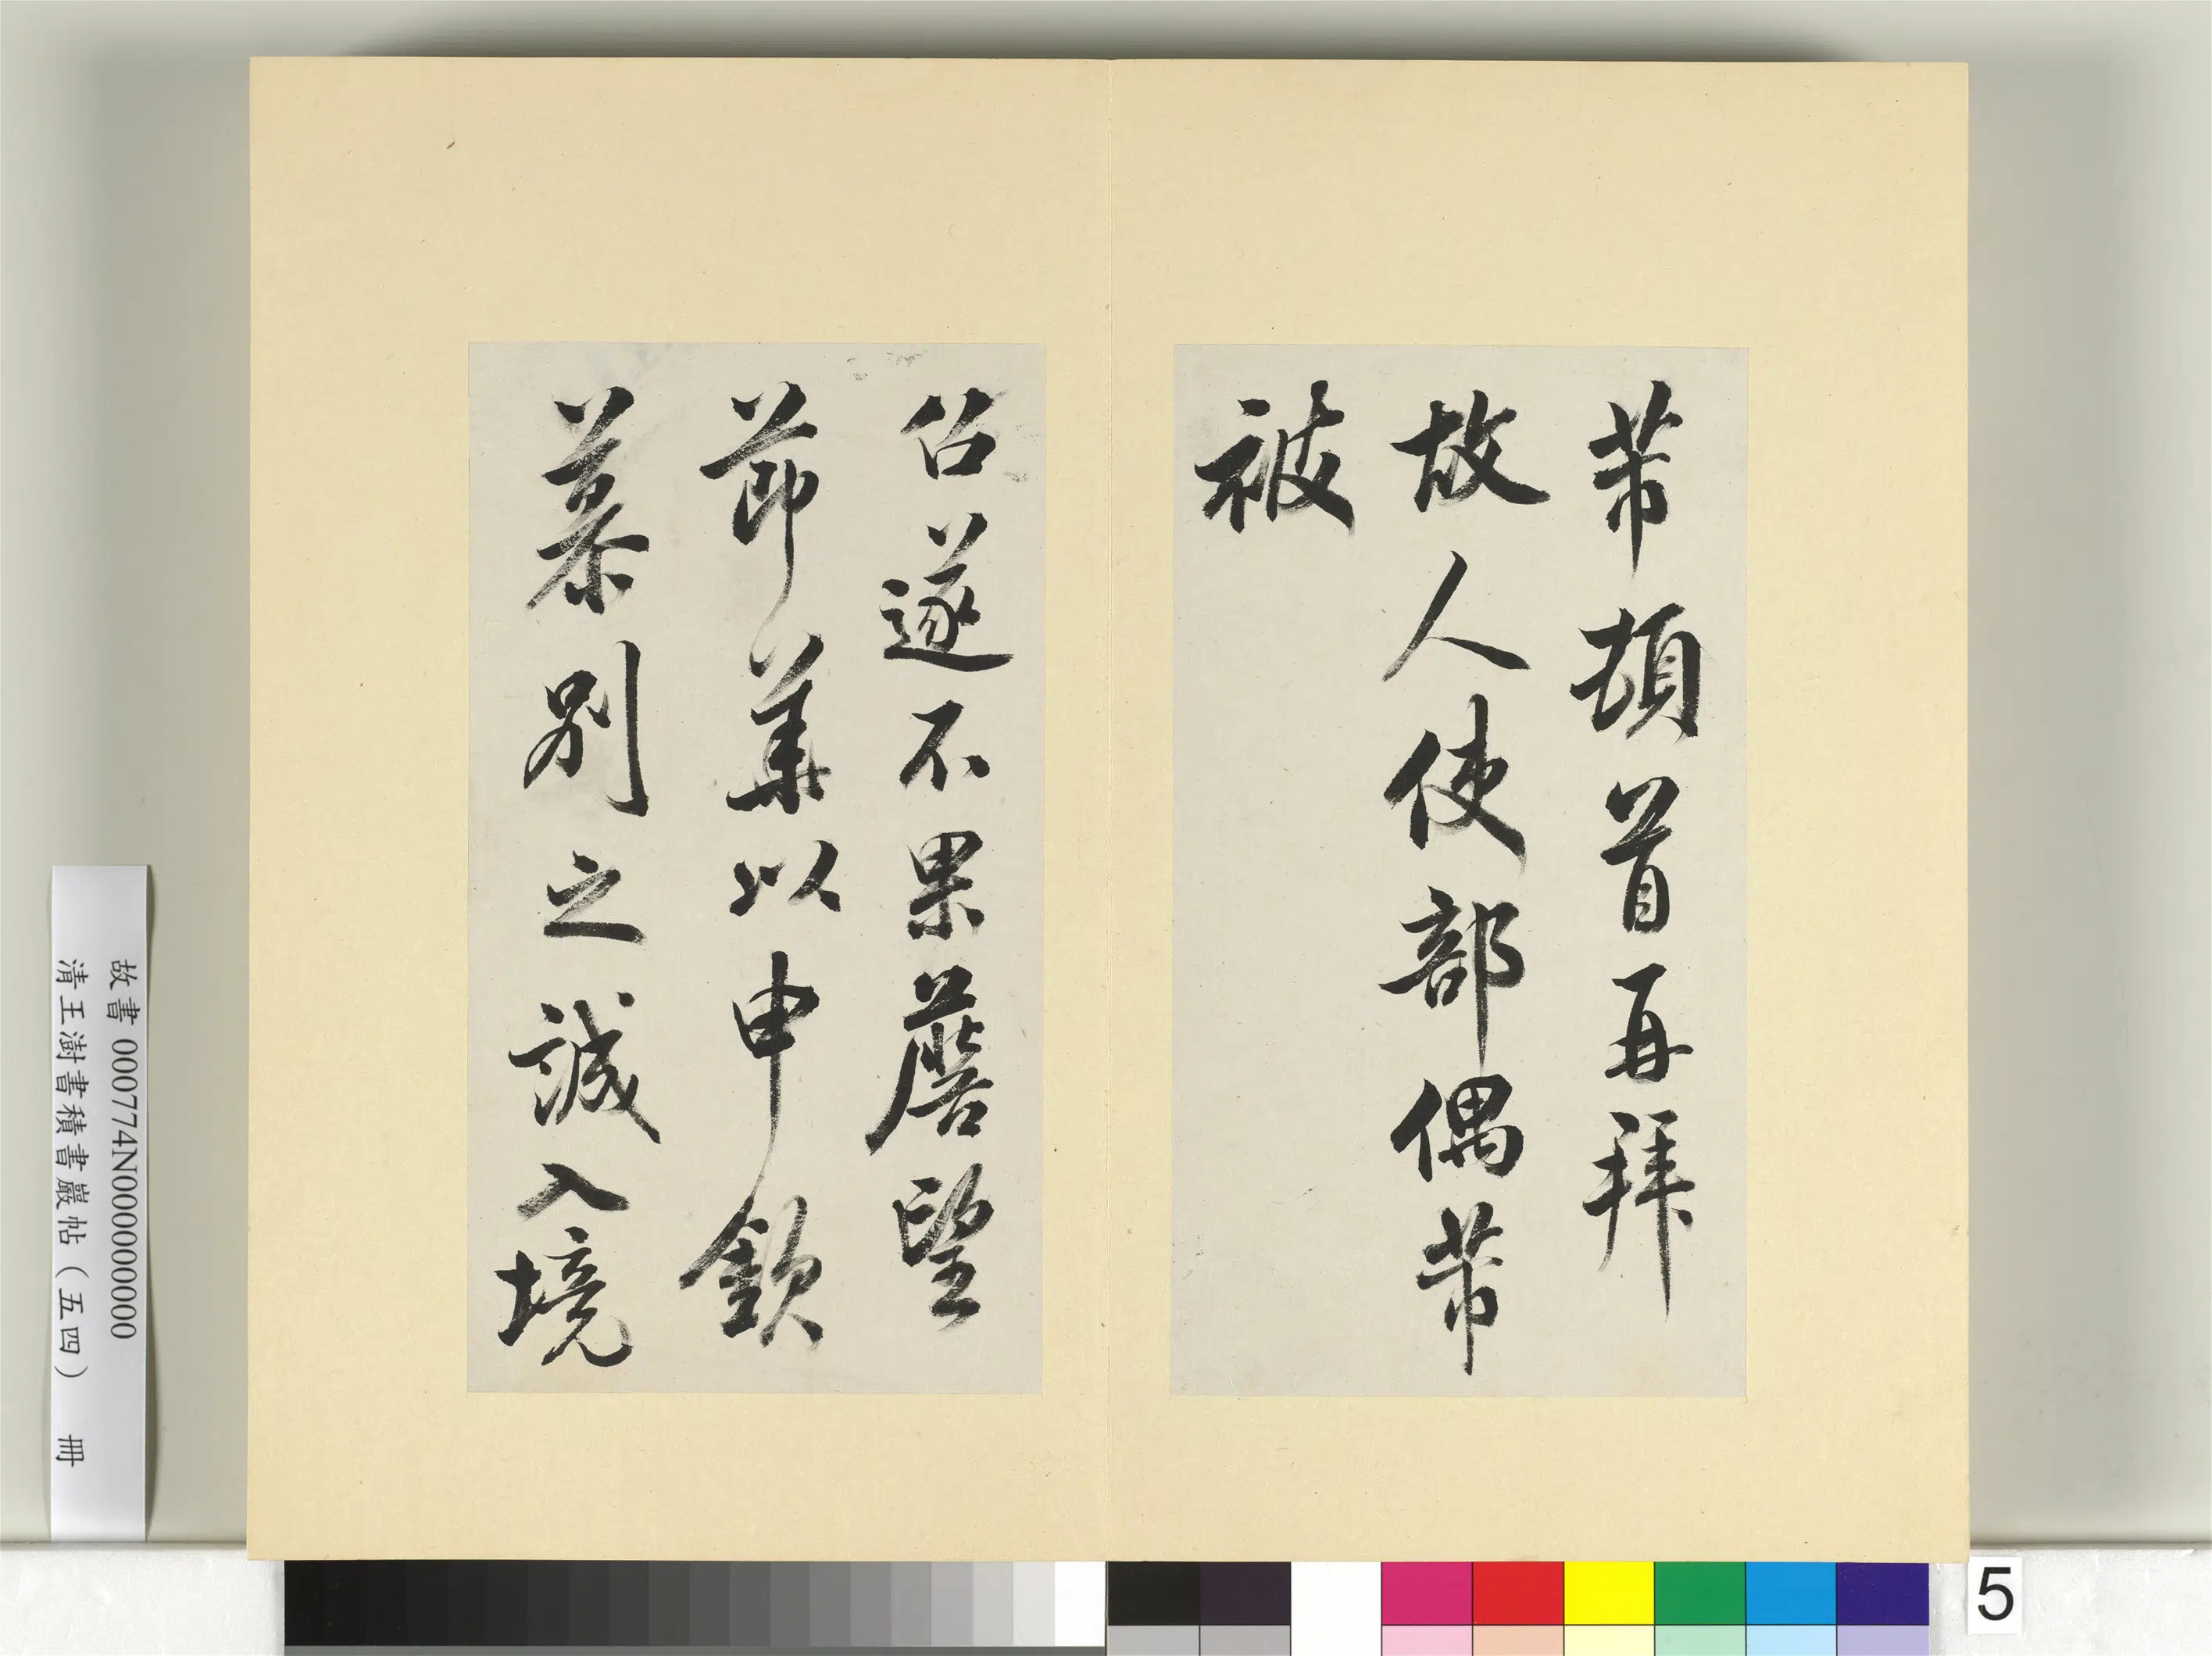 芾頓首再拜
故人使部偶芾
被
佋遂不果蘑望
節華以申欽
慕別之誠入境
故書 000774N000000000
清王澍書積書巖帖（五四） 冊
5